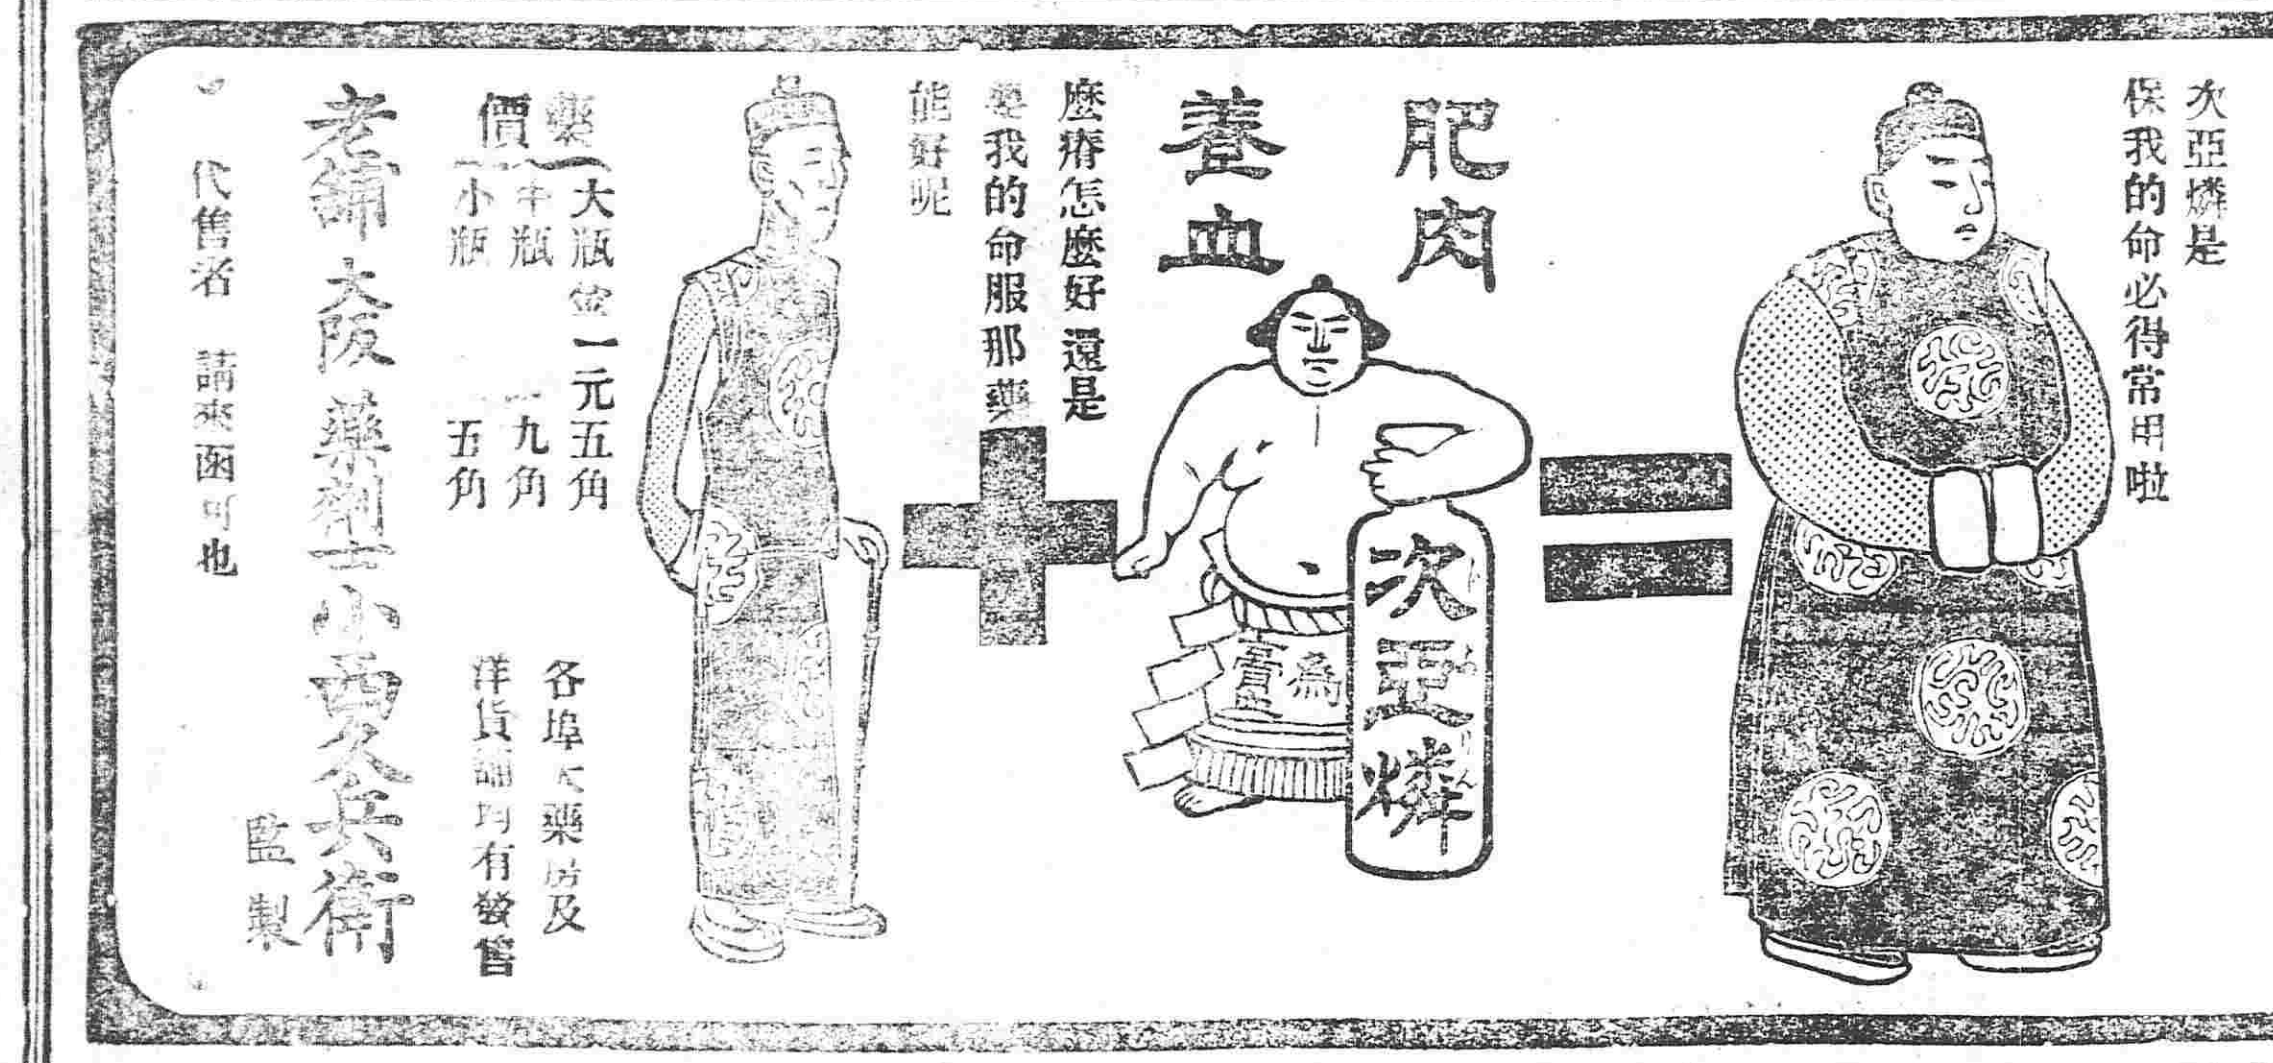 次亞燐是
保我的命必得常用啦
肥肉
養血
次亞燐
為
膏
麼瘠怎麼好還是
要我的命服那藥
能好呢
藥價
大瓶金一元五角
中瓶 九角
小瓶 五角
各埠大藥房及
洋貨舖均有發售
老舖 大阪藥劑士小西久兵衛
監製
代售者 請來函可也